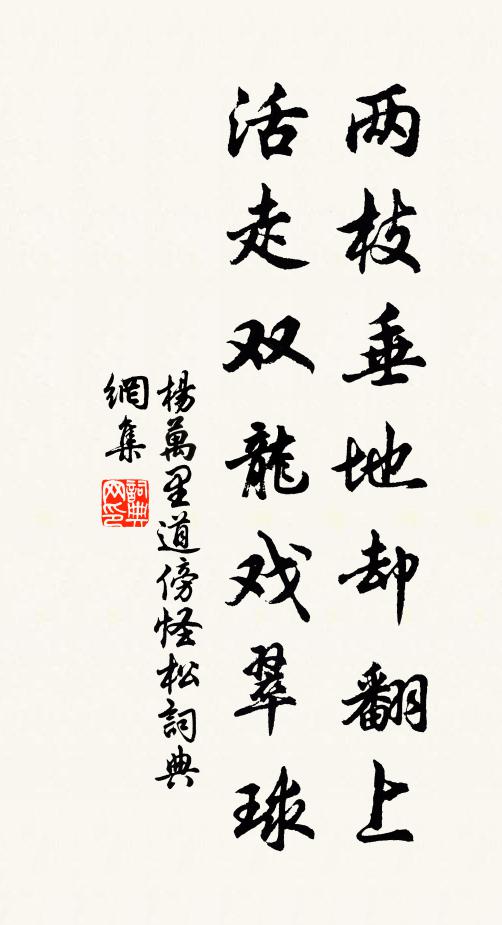 两枝垂地却翻上
活走双龍戏翠球
楊萬里道傍怪松詞典
網集
詞典
网印